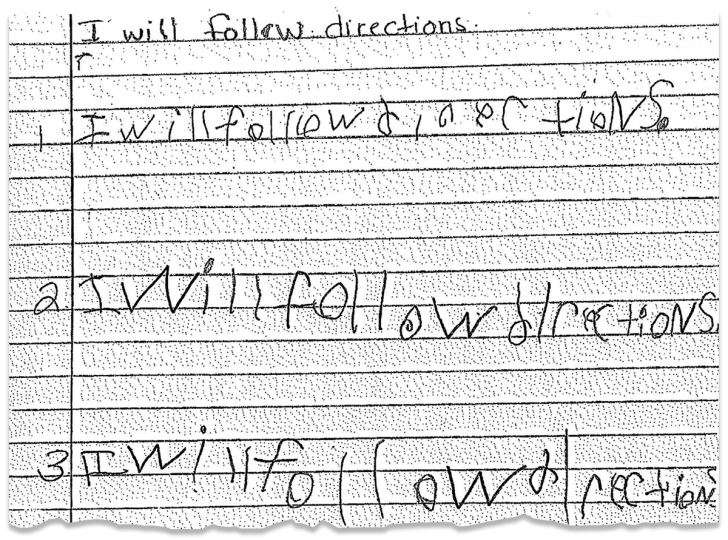 I will follow directions.
r
1 I will follow directions.
2 I Will follow directions.
3 I will follow directions